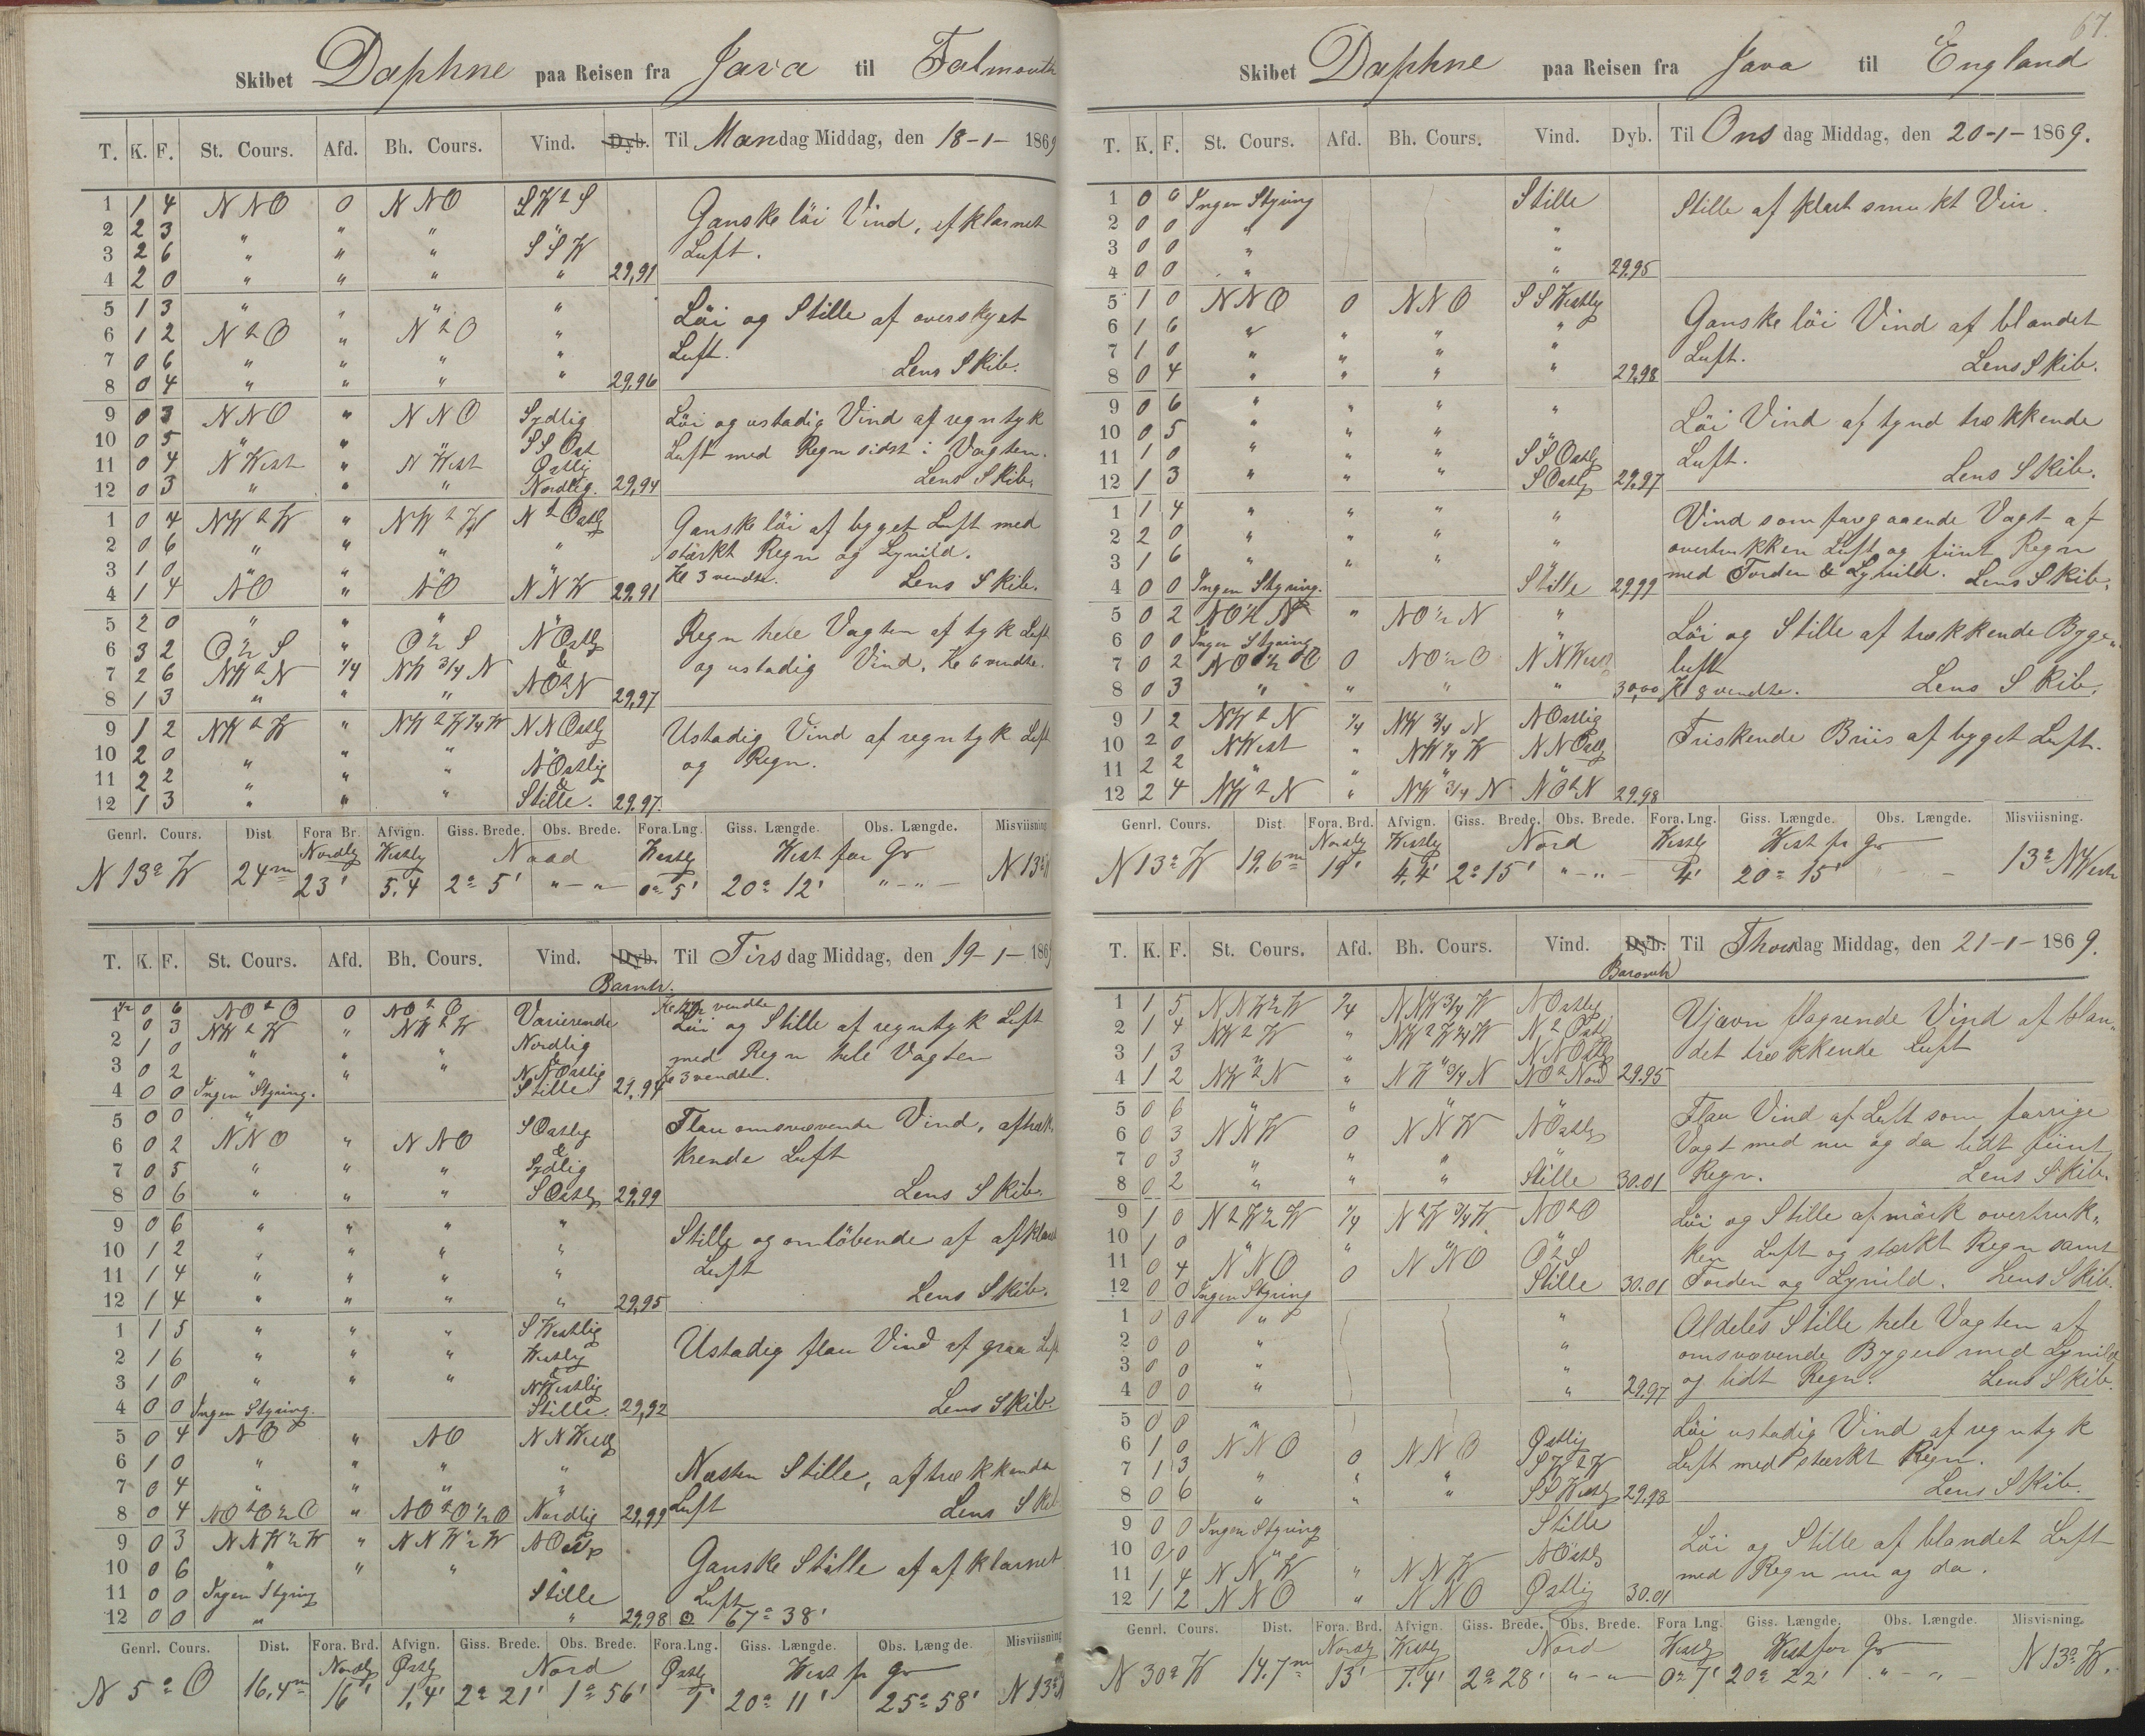 67.
Skibet Daphne paa Reisen fra Java til Falmouth
T. K. F. St. Cours. Afd. Bh. Cours. Vind. Dyb. Til Mandag Middag, den 18-1- 1869
1 1 4 NNO 0 NNO SW2S
2 2 3 " " "
3 2 6 " " " SSW
4 2 0 " " " " 29,91
Ganske löi Vind, afklarnet
Luft.
5 1 3 " " " "
6 1 2 N2O " N2O "
7 0 6 " " " "
8 0 4 " " " " 29,96
Löi og Stille af overskyet
Luft.
Lens Skib.
9 0 3 NNO " NNO Sydlig
10 0 5 " " " SSOst
11 0 4 N West " N West Østlig
12 0 3 " " " Nordlig. 29,94
Löi og ustadig Vind af regntyk
Luft med Regn sidst i Vagten.
Lens Skib.
1 0 4 NW2W " NW2W N2Ostlig
2 0 6 " " " "
3 1 0 " " " "
4 1 4 NO " NO NNW 29,91
Ganske löi af byget Luft med
stärkt Regn og Lynild.
Kl 3 vendte. Lens Skib.
5 2 0 " " " "
6 3 2 O½S " O½S NOstlig
7 2 6 NW2N 1/4 NW 3/4 N &
8 1 3 " " " NO2N 29,97
Regn hele Vagten af tyk Luft
og ustadig Vind. Kl 6 vendte.
9 1 2 NW2W " NW2W1/4W NNOstlig
10 2 0 " " " "
11 2 2 " " " NOstlig &
12 1 3 " " " Stille. 29,97.
Ustadig Vind af regntyk Luft
og Regn.
Genrl. Cours. Dist. Fora Br. Afvign. Giss. Brede. Obs. Brede. Fora.Lng. Giss. Længde. Obs. Længde. Misviisning
Nordlig Westlig Nord Westlig West for Gr
N 13° W 24m 23' 5.4 2° 5' "-"- 0° 5' 20° 12' "-"- N 13° W
T. K. F. St. Cours. Afd. Bh. Cours. Vind. Dyb. Til Tirsdag Middag, den 19-1- 1869
Barmtr.
1 0 6 NO2O 0 NO2O Varierende
0 3 NW2W " NW2W
2 1 0 " " " Nordlig
3 0 2 " " " NNOstlig
4 0 0 Ingen Styring. Stille 29,94
vendte
Löi og Stille af regntyk Luft
med Regn hele Vagten
Kl 3 vendte.
5 0 0 " SOstlig
6 0 2 NNO " NNO &
7 0 5 " " " Sydlig
8 0 6 " " " SOstlig 29,99
Flau omsvævende Vind, aftræk
kende Luft
Lens Skib.
9 0 6 " " " "
10 1 2 " " " "
11 1 4 " " " "
12 1 4 " " " " 29,95
Stille og omlöbende af afklarnet
Luft
Lens Skib.
1 1 5 " " " SWestlig
2 1 6 " " " Westlig
3 1 0 " " " NWestlig
4 0 0 Ingen Styring. Stille. 29,92
Ustadig flau Vind af graa Luft
Lens Skib.
5 0 4 NO " NO NNWestlig
6 1 0 " " " "
7 0 4 " " " "
8 0 4 NO2O½O " NO2O½O Nordlig 29,99
Næsten Stille, aftrækkende
Luft Lens Skib
9 0 3 NNW½W " NNW½W NOstlig
10 0 6 " " " "
11 0 0 Ingen Styring Stille
12 0 0 " " 29,98
Ganske Stille af afklarnet
Luft
67° 38'
Genrl. Cours. Dist. Fora. Brd. Afvign. Giss. Brede. Obs. Brede. Fora.Lng. Giss. Længde. Obs. Længde. Misviisning
Nordlig Østlig Nord Østlig West fr Gr
N 5° O 16,4m 16' 1,4' 2° 21' 1° 56' 1' 20° 11' 25° 58' N 13° W
Skibet Daphne paa Reisen fra Java til England
T. K. F. St. Cours. Afd. Bh. Cours. Vind. Dyb. Til Onsdag Middag, den 20-1- 1869.
1 0 0 Ingen Styring Stille
2 0 0 " "
3 0 0 " "
4 0 0 " " 29.95
Stille af klart smukt Veir.
5 1 0 NNO 0 NNO SSWestlig
6 1 6 " " " "
7 1 0 " " " "
8 0 4 " " " " 29,98
Ganske löi Vind af blandet
Luft. Lens Skib.
9 0 6 " " " "
10 0 5 " " " "
11 1 0 " " " SSOstlig
12 1 3 " " " SOstlig 29,97
Löi Vind af tynd trækkende
Luft.
Lens Skib.
1 1 4 " " " "
2 2 0 " " " "
3 1 6 " " " "
4 0 0 Ingen Styring. Stille 29,99
Vind som foregaaende Vagt af
overtrukken Luft og fiint Regn
med Torden & Lynild. Lens Skib.
5 0 2 NO½N " NO½N "
6 0 0 Ingen Styring "
7 0 2 NO½O 0 NO½O NNWestl
8 0 3 " " " " 30,00
Löi og Stille af trækkende Byge"
luft
Kl 8 vendte. Lens Skib.
9 1 2 NW2N 1/4 NW 3/4 N NOstlig
10 2 0 NWest " NW 1/4 W NNOstlig
11 2 2 " " " "
12 2 4 NW2N " NW 3/4 N NO2N 29.98
Friskende Briis af byget Luft.
Genrl. Cours. Dist. Fora. Brd. Afvign. Giss. Brede. Obs. Brede. Fora. Lng. Giss. Længde. Obs. Længde. Misviisning.
Nordlig Westlig Nord Westlig West fr Gr
N 13° W 19,6m 19' 4,4' 2° 15' "-"- 4' 20° 15' - 13° NWest
T. K. F. St. Cours. Afd. Bh. Cours. Vind. Dyb. Til Thorsdag Middag, den 21-1- 1869.
Baromtr
1 1 5 NNW½W 1/4 NNW 3/4 W NOstlig
2 1 4 NW2W " NW2W 1/4 W N2Ostl
3 1 3 " " " NNOstlig
4 1 2 NW2N " NW 3/4 N NO2Nord 29.95
Ujævn flagrende Vind af blan"
det trækkende Luft
5 0 6 " " " "
6 0 3 NNW 0 NNW NOstlig
7 0 3 " " " "
8 0 2 " " " Stille 30.01
Flau Vind af Luft som forrige
Vagt med nu og da lidt fiint
Regn. Lens Skib.
9 1 0 N2W½W 1/4 N2W 3/4 W NO2O
10 1 0 " " " "
11 0 4 NNO 0 NNO O½S
12 0 0 Ingen Styring Stille 30.01
Löi og Stille af mörk overtruk"
ken Luft og stærkt Regn samt
Torden og Lynild. Lens Skib.
1 0 0 " "
2 0 0 " "
3 0 0 " "
4 0 0 " " 29,97
Aldeles Stille hele Vagten af
omsvævende Byger med Lynild
og lidt Regn. Lens Skib.
5 0 0 "
6 1 0 NNO 0 NNO Østlig
7 1 3 " " " SW2W
8 0 6 " " " SSWestlig 29,98
Löi ustadig Vind af regntyk
Luft med stærkt Regn.
Lens Skib.
9 0 0 Ingen Styring Stille
10 0 0 " NOstlig
11 1 4 NNW " NNW
12 1 2 NNO " NNO Østlig 30.01
Löi og Stille af blandet Luft
med Regn nu og da.
Genrl. Cours. Dist. Fora. Brd. Afvign. Giss. Brede. Obs. Brede. Fora Lng. Giss. Længde. Obs. Længde. Misvisning.
Nordlig Westlig Nord Westlig West for Gr
N 30° W 14.7m 13' 7.4' 2° 28' "-" 0° 7' 20° 22' "-" N 13° W.